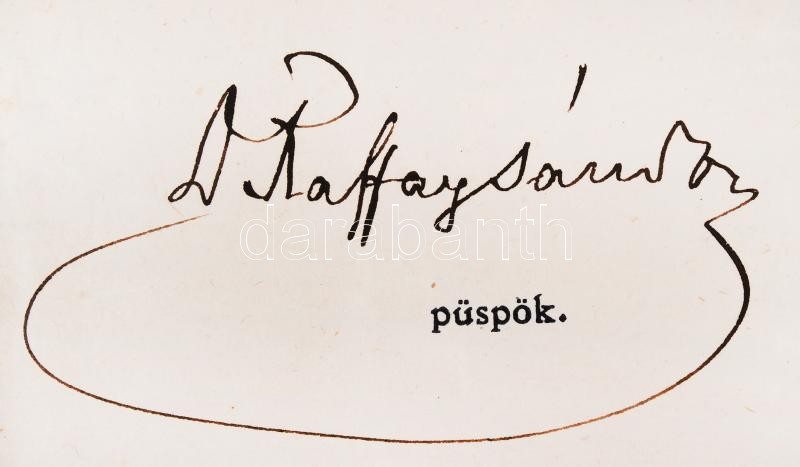 D Raffay Sándor
darabanth
püspök.